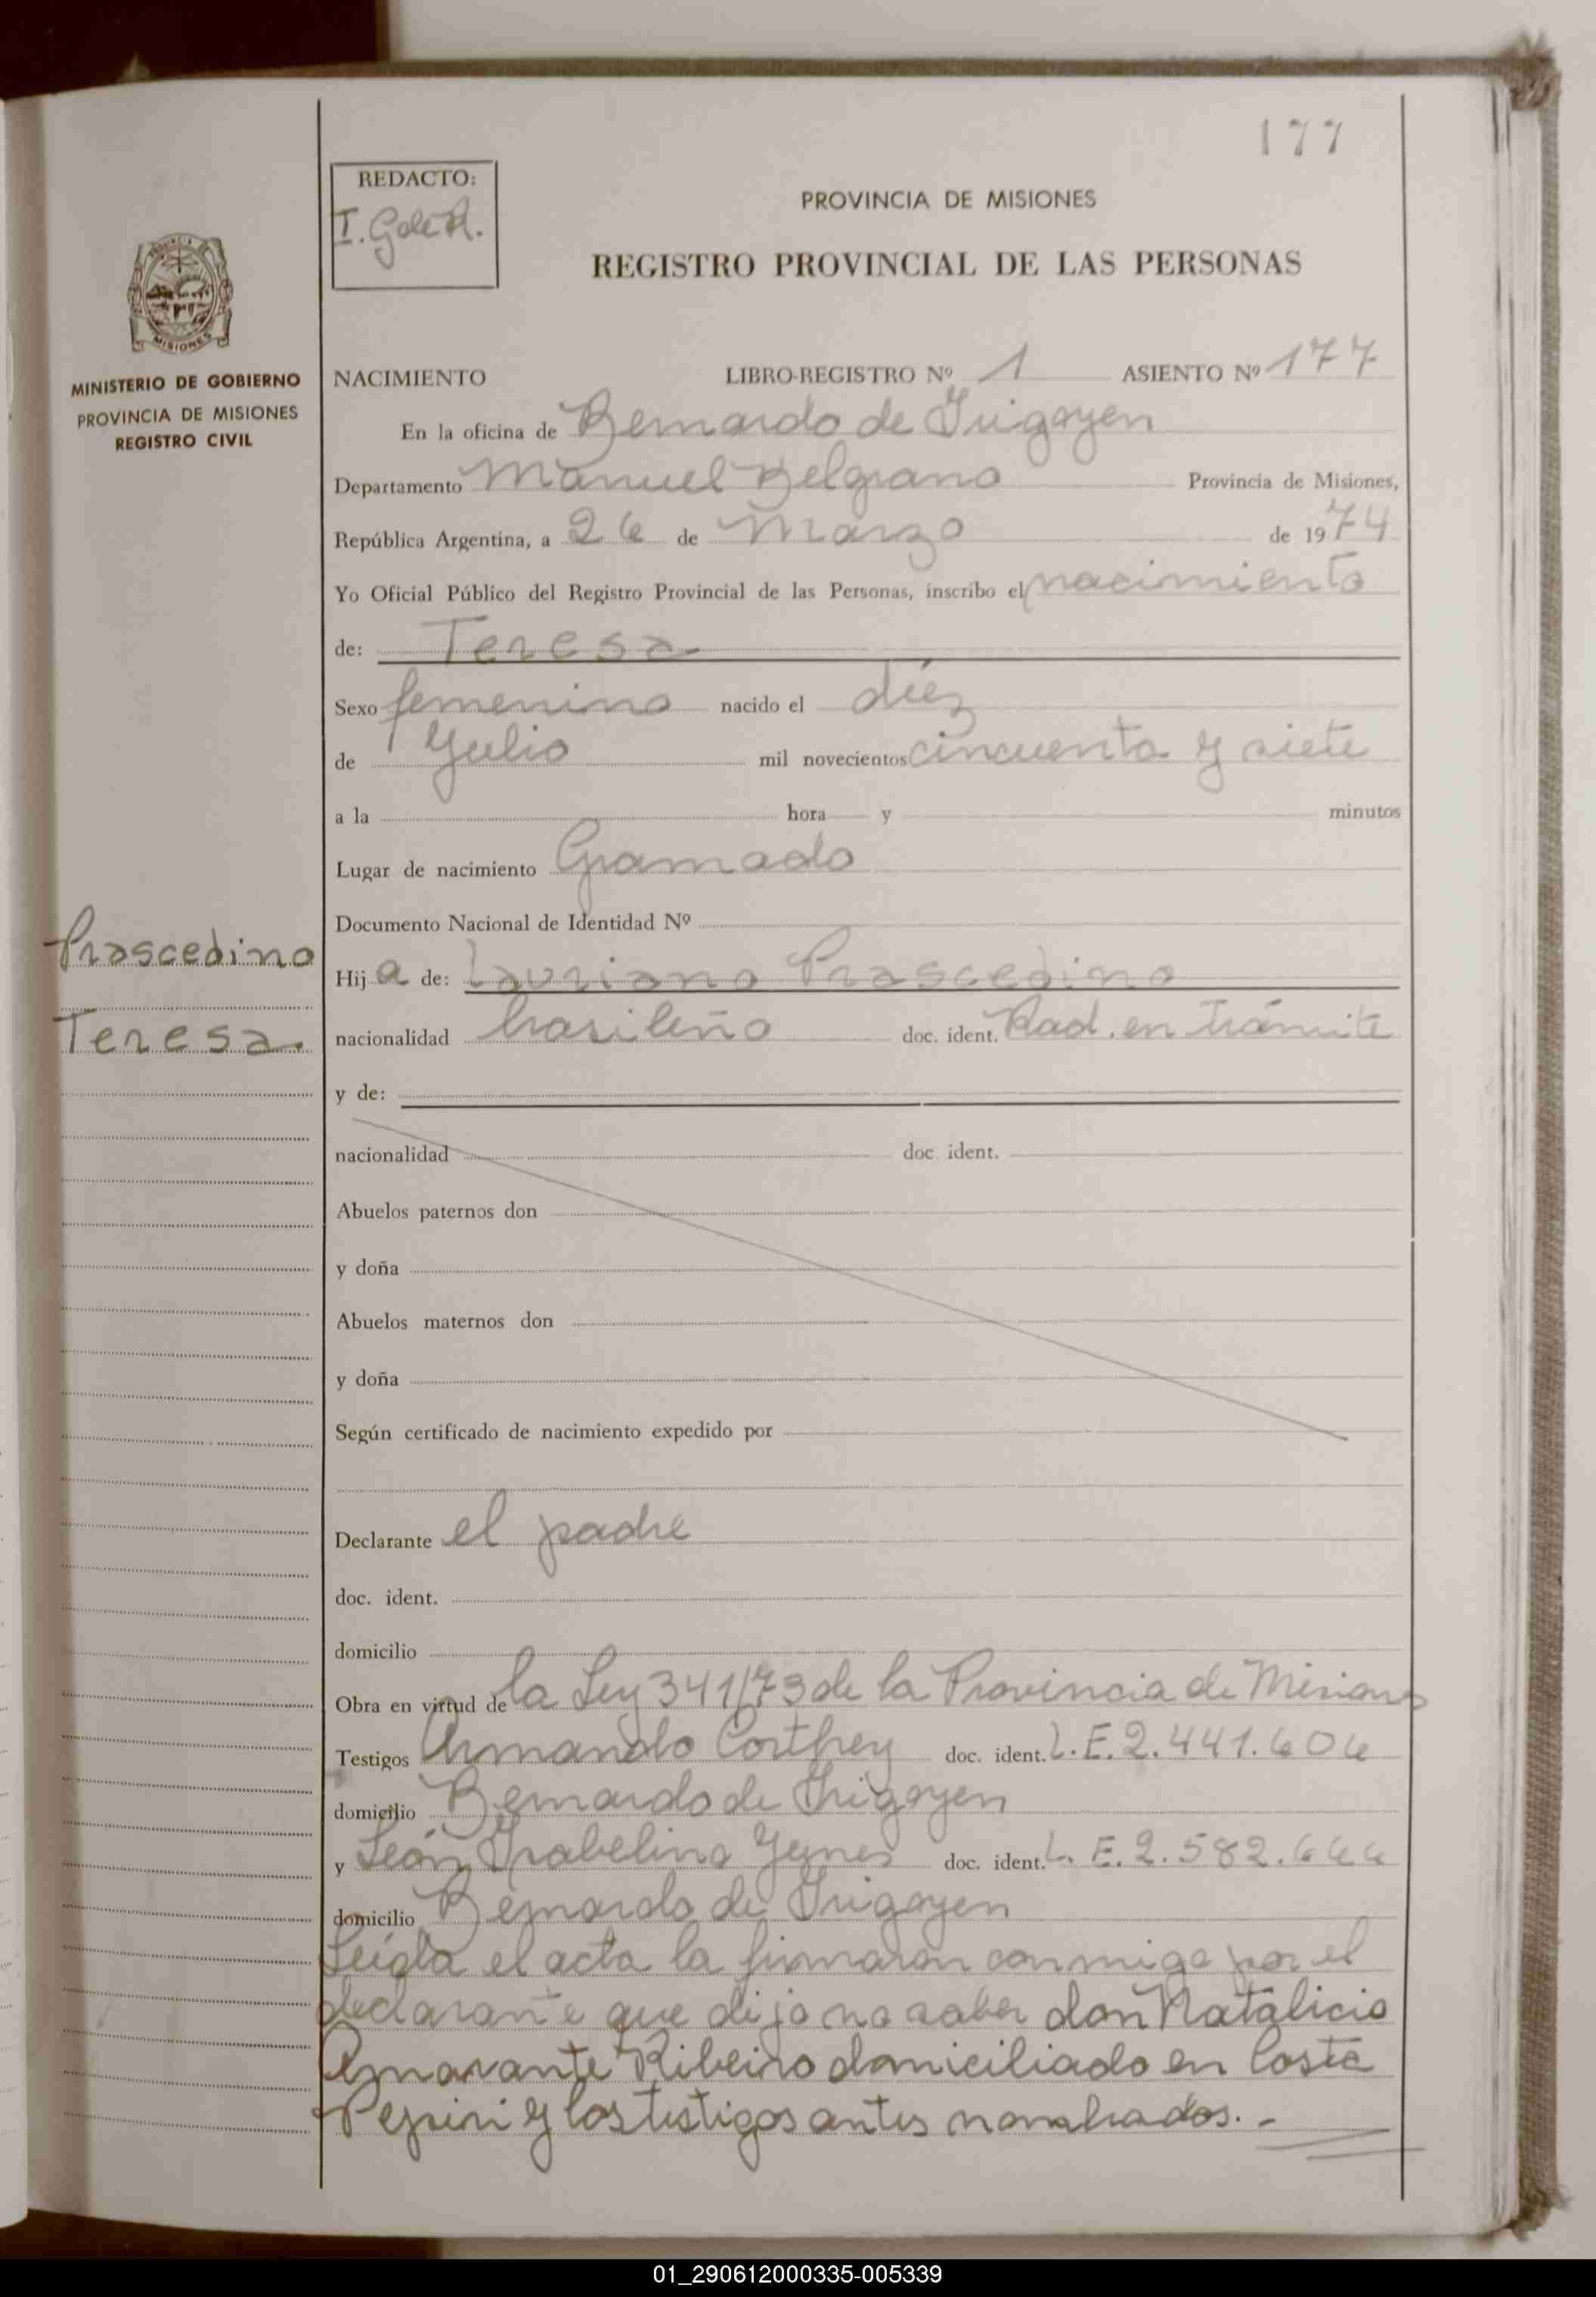 177
REDACTO:
PROVINCIA DE MISIONES
REGISTRO PROVINCIAL DE LAS PERSONAS
MISIONES
MINISTERIO DE GOBIERNO
PROVINCIA DE MISIONES
REGISTRO CIVIL
NACIMIENTO LIBRO-REGISTRO Nº 1 ASIENTO Nº 177
En la oficina de Bernardo de Irigoyen
Departamento Manuel Belgrano Provincia de Misiones,
República Argentina, a 26 de Marzo de 1974
Yo Oficial Público del Registro Provincial de las Personas, inscribo el nacimiento
de: Teresa
Sexo femenino nacido el diéz
de Julio mil novecientos cincuenta y siete
a la hora y minutos
Lugar de nacimiento Gramado
Documento Nacional de Identidad Nº
Prascedino
Teresa.
Hij a de: Lauriano Prascedino
nacionalidad brasileño doc. ident. Rad. en trámite
y de:
nacionalidad doc. ident.
Abuelos paternos don
y doña
Abuelos maternos don
y doña
Según certificado de nacimiento expedido por
Declarante el padre
doc. ident.
domicilio
Obra en virtud de la Ley 341/73 de la Provincia de Misiones
Testigos Armando Corthey doc. ident. L.E.2.441.606
domicilio Bernardo de Irigoyen
y León Ysabelino doc. ident. L.E.2.582.666
domicilio Bernardo de Irigoyen
Leída el acta la firmaron conmigo por el
declarante que dijo no saber don Natalicio
Amarante Ribeiro domiciliado en Costa
Pepiri y los testigos antes nombrados.-
01_290612000335-005339